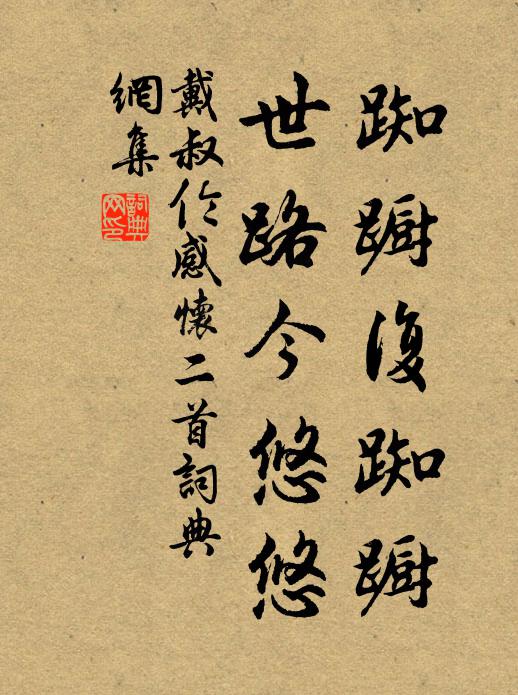 踟蹰復踟蹰
世路今悠悠
戴叔伦感懷二首詞典
網集
詞典網印